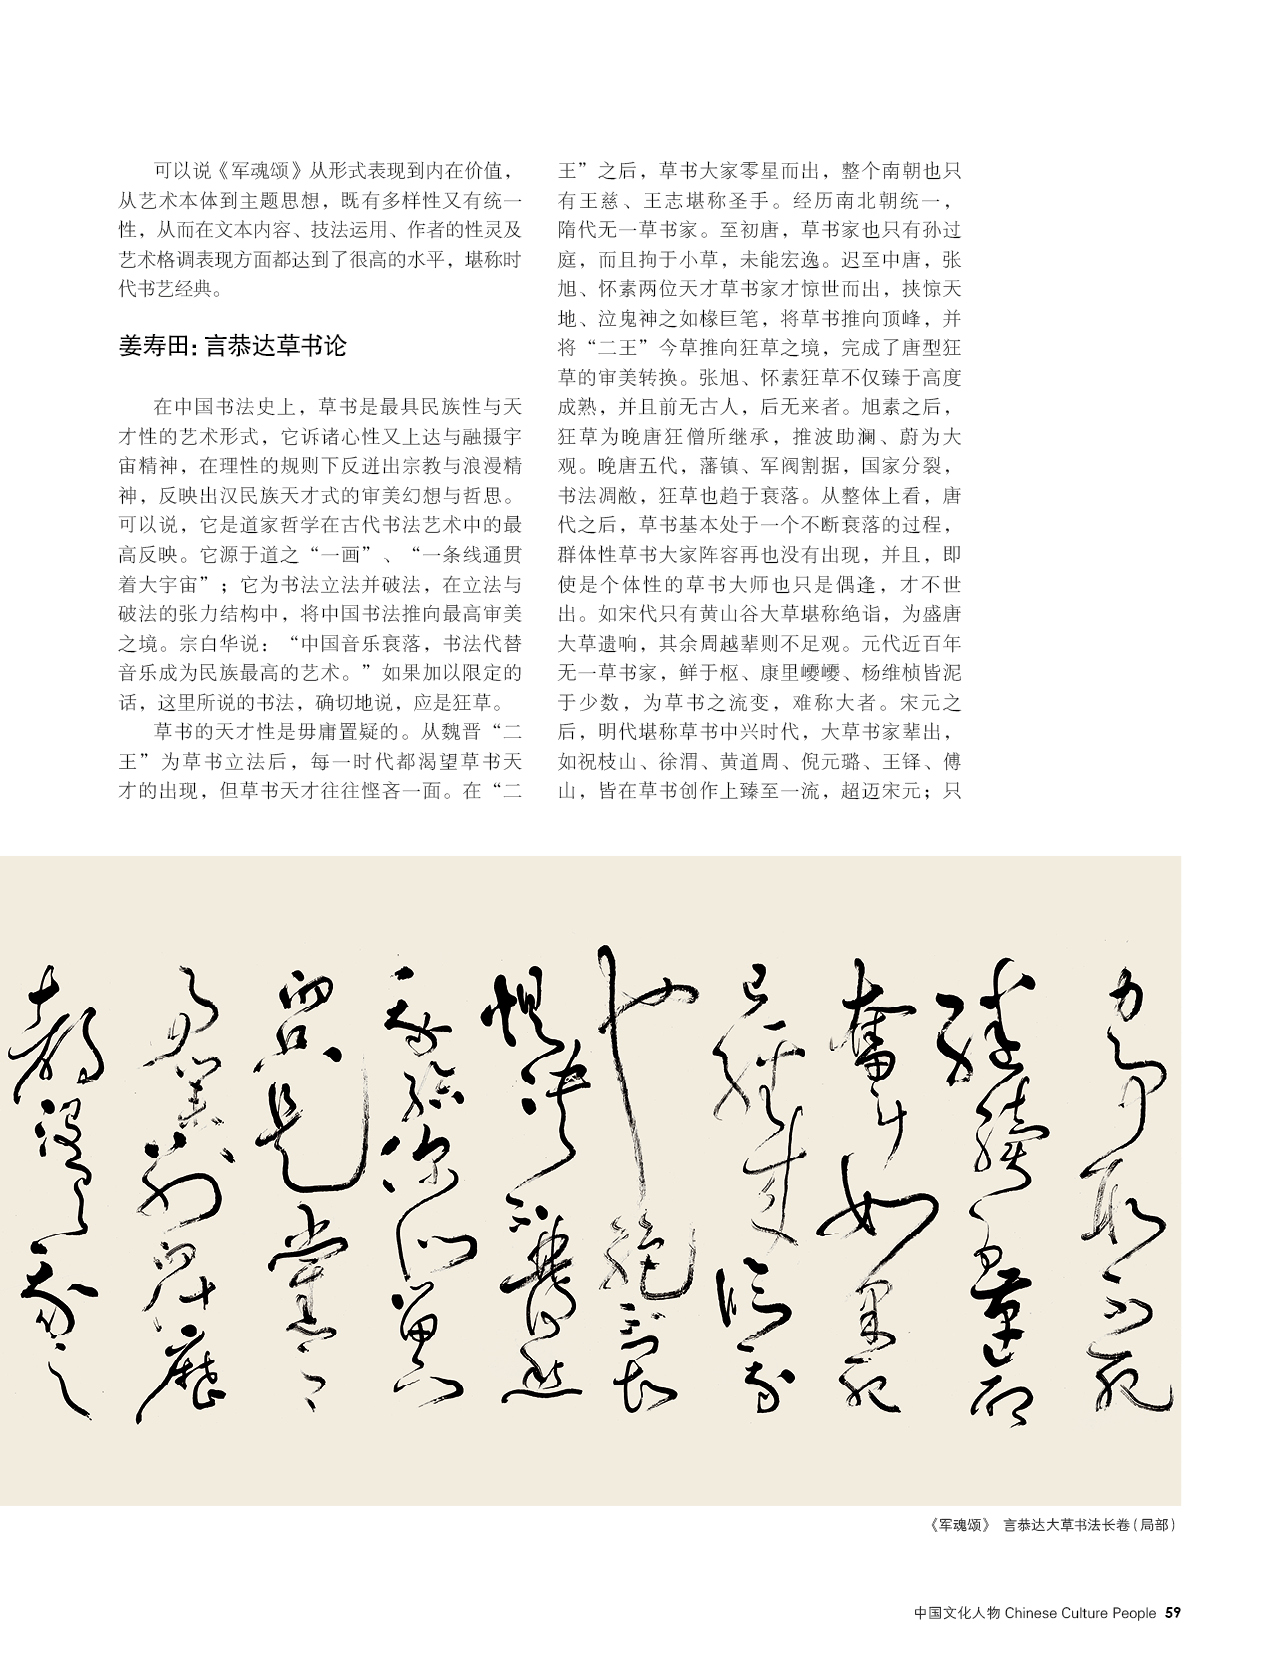 可以说《军魂颂》从形式表现到内在价值，
从艺术本体到主题思想，既有多样性又有统一
性，从而在文本内容、技法运用、作者的性灵及
艺术格调表现方面都达到了很高的水平，堪称时
代书艺经典。
姜寿田：言恭达草书论
在中国书法史上，草书是最具民族性与天
才性的艺术形式，它诉诸心性又上达与融摄宇
宙精神，在理性的规则下反迸出宗教与浪漫精
神，反映出汉民族天才式的审美幻想与哲思。
可以说，它是道家哲学在古代书法艺术中的最
高反映。它源于道之“一画”、“一条线通贯
着大宇宙”；它为书法立法并破法，在立法与
破法的张力结构中，将中国书法推向最高审美
之境。宗白华说：“中国音乐衰落，书法代替
音乐成为民族最高的艺术。”如果加以限定的
话，这里所说的书法，确切地说，应是狂草。
草书的天才性是毋庸置疑的。从魏晋“二
王”为草书立法后，每一时代都渴望草书天
才的出现，但草书天才往往悭吝一面。在“二
王”之后，草书大家零星而出，整个南朝也只
有王慈、王志堪称圣手。经历南北朝统一，
隋代无一草书家。至初唐，草书家也只有孙过
庭，而且拘于小草，未能宏逸。迟至中唐，张
旭、怀素两位天才草书家才惊世而出，挟惊天
地、泣鬼神之如椽巨笔，将草书推向顶峰，并
将“二王”今草推向狂草之境，完成了唐型狂
草的审美转换。张旭、怀素狂草不仅臻于高度
成熟，并且前无古人，后无来者。旭素之后，
狂草为晚唐狂僧所继承，推波助澜、蔚为大
观。晚唐五代，藩镇、军阀割据，国家分裂，
书法凋敝，狂草也趋于衰落。从整体上看，唐
代之后，草书基本处于一个不断衰落的过程，
群体性草书大家阵容再也没有出现，并且，即
使是个体性的草书大师也只是偶逢，才不世
出。如宋代只有黄山谷大草堪称绝诣，为盛唐
大草遗响，其余周越辈则不足观。元代近百年
无一草书家，鲜于枢、康里巎巎、杨维桢皆泥
于少数，为草书之流变，难称大者。宋元之
后，明代堪称草书中兴时代，大草书家辈出，
如祝枝山、徐渭、黄道周、倪元璐、王铎、傅
山，皆在草书创作上臻至一流，超迈宋元；只
《军魂颂》 言恭达大草书法长卷（局部）
中国文化人物 Chinese Culture People 59